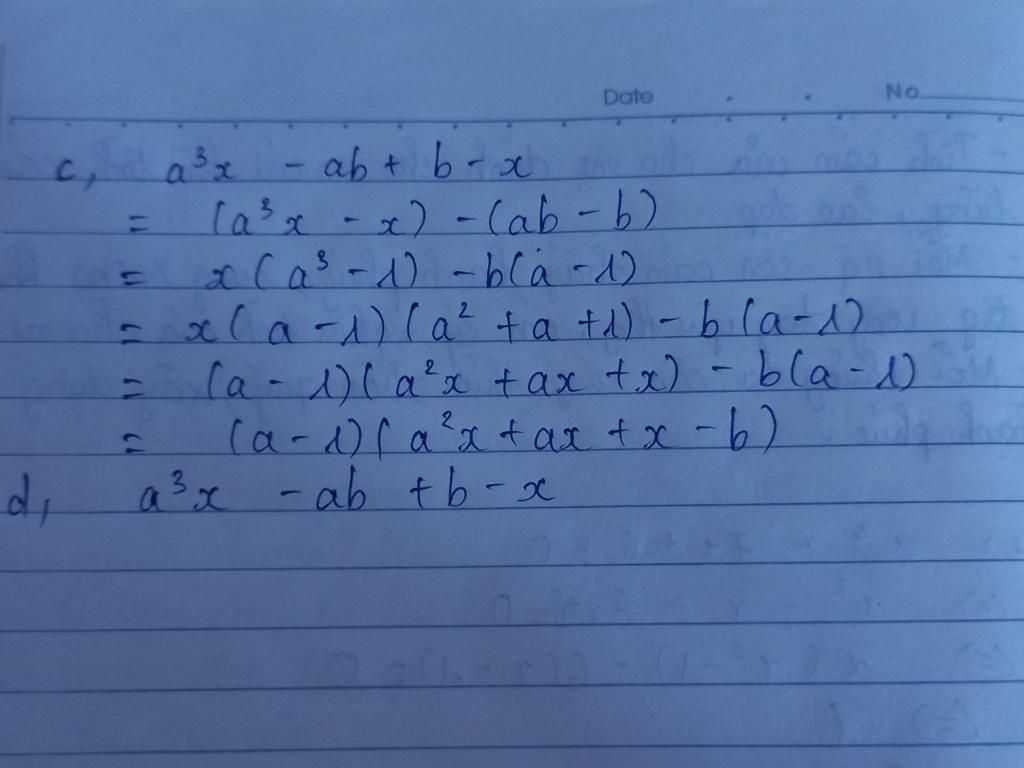 Date . . No
c, a³x - ab + b - x
= (a³x - x) - (ab - b)
= x(a³ - 1) - b(a - 1)
= x(a - 1)(a² + a + 1) - b(a - 1)
= (a - 1)(a²x + ax + x) - b(a - 1)
= (a - 1)(a²x + ax + x - b)
d, a³x - ab + b - x